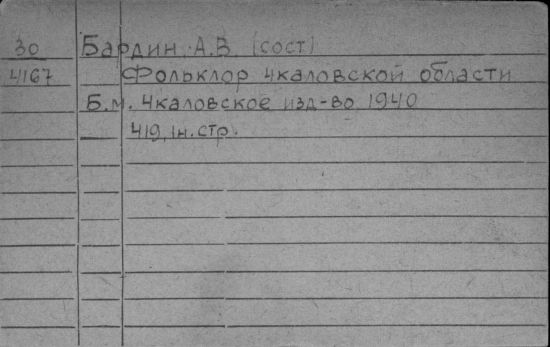 30 Бардин, А.В. (сост)
4167 Фольклор Чкаловской области
Б.м. Чкаловское изд-во 1940
419, 1н. стр.